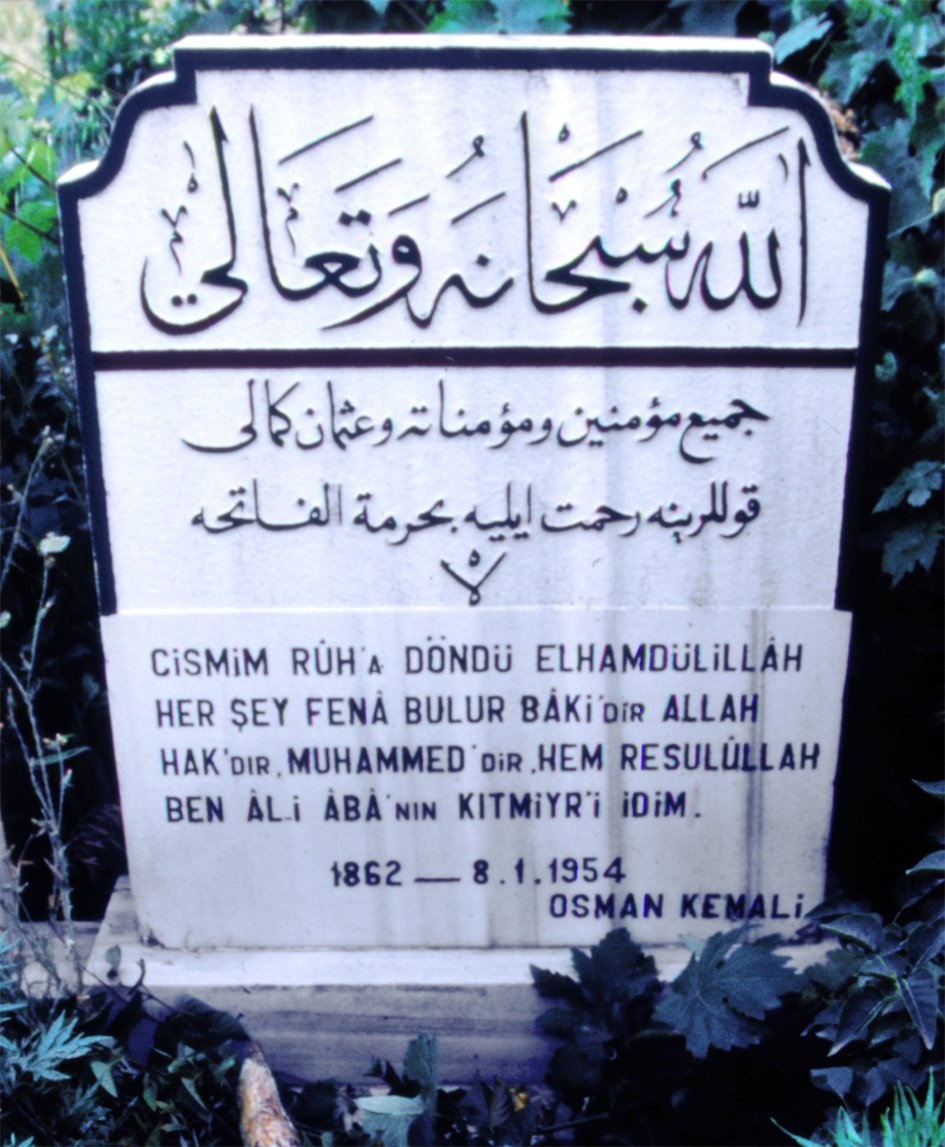 الله سُبْحَانُه وَتَعَالٰي
جميع مؤمنين ومؤمناته وعثمان كمالى
قوللرينه رحمت ايليه بحرمة الفاتحه
CİSMİM RÛH'A DÖNDÜ ELHAMDÜLİLLÂH
HER ŞEY FENÂ BULUR BÂKİ'DİR ALLAH
HAK'DIR, MUHAMMED'DİR, HEM RESULÛLLAH
BEN ÂL-İ ÂBÂ'NIN KITMİYR'İ İDİM.
1862 — 8.1.1954
OSMAN KEMALİ